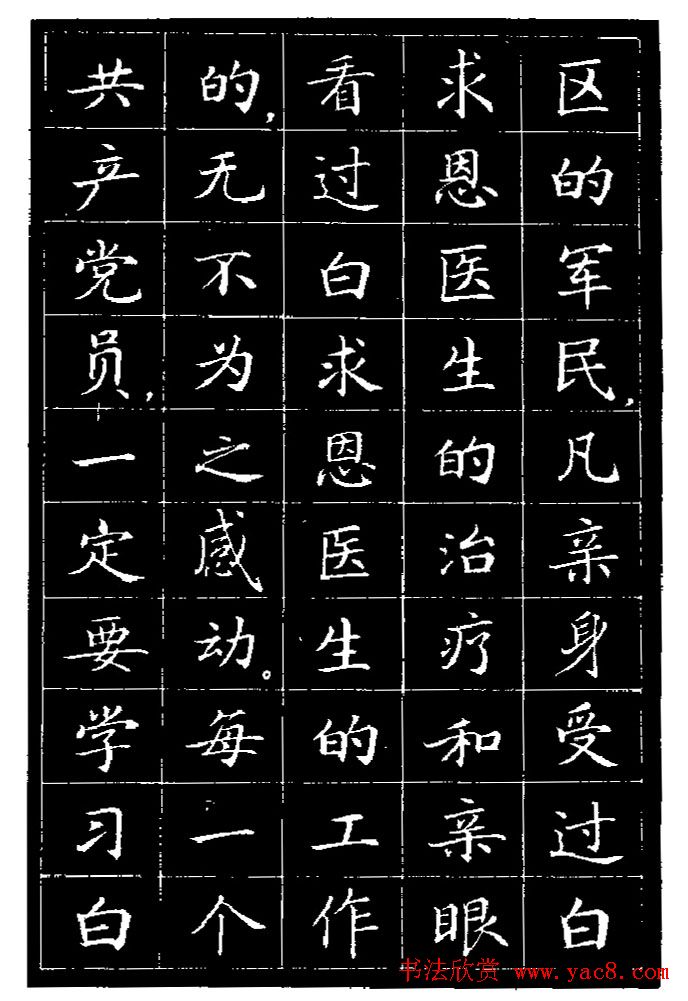 区的军民，凡亲身受过白
求恩医生的治疗和亲眼
看过白求恩医生的工作
的，无不为之感动。每一个
共产党员，一定要学习白
书法欣赏 www.yac8.com